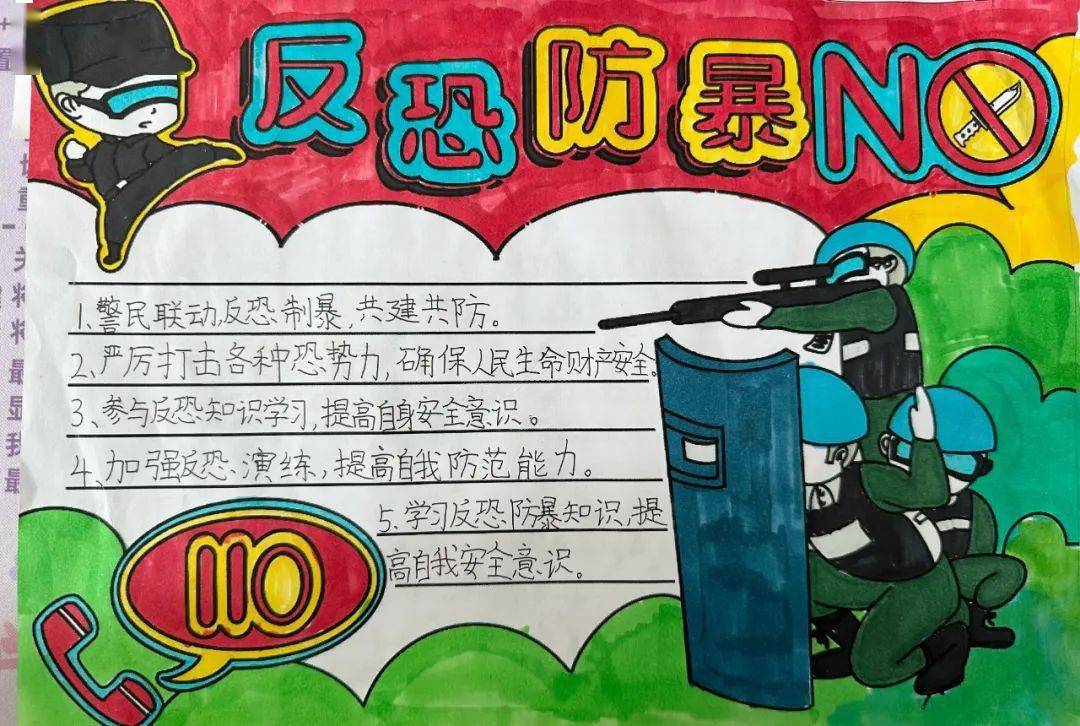 反恐防暴NO
1、警民联动,反恐制暴,共建共防。
2、严厉打击各种恐势力,确保人民生命财产安全。
3、参与反恐知识学习,提高自身安全意识。
4、加强反恐演练,提高自我防范能力。
5、学习反恐防暴知识,提
高自我安全意识。
110
置
重
关
将
将
最
显
我
最